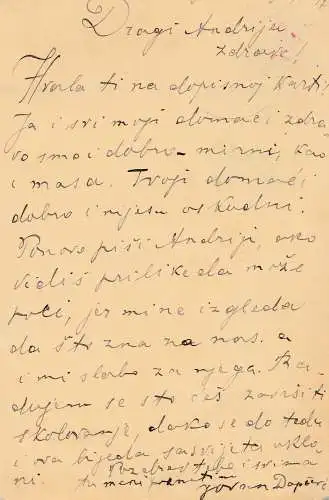 Dragi Andrija
zdravo!
Hvala ti na dopisnoj karti,
Ja i svi moji domaći zdra
vo smo i dobro - mirni, kao
i masa. Tvoji domaći
dobro i nijesu oskudni.
Ponovo piši Andriji, ako
vidiš prilike da može
poći, jer mi ne izgleda
da što zna za nas. a
i mi slabo za njega. Ra
dujem se što ćeš završiti
školovanje, dok se do tada
i ova bijeda sa svijeta uklo
ni. Pozdrav tebi i svima
tu meni
Jovan